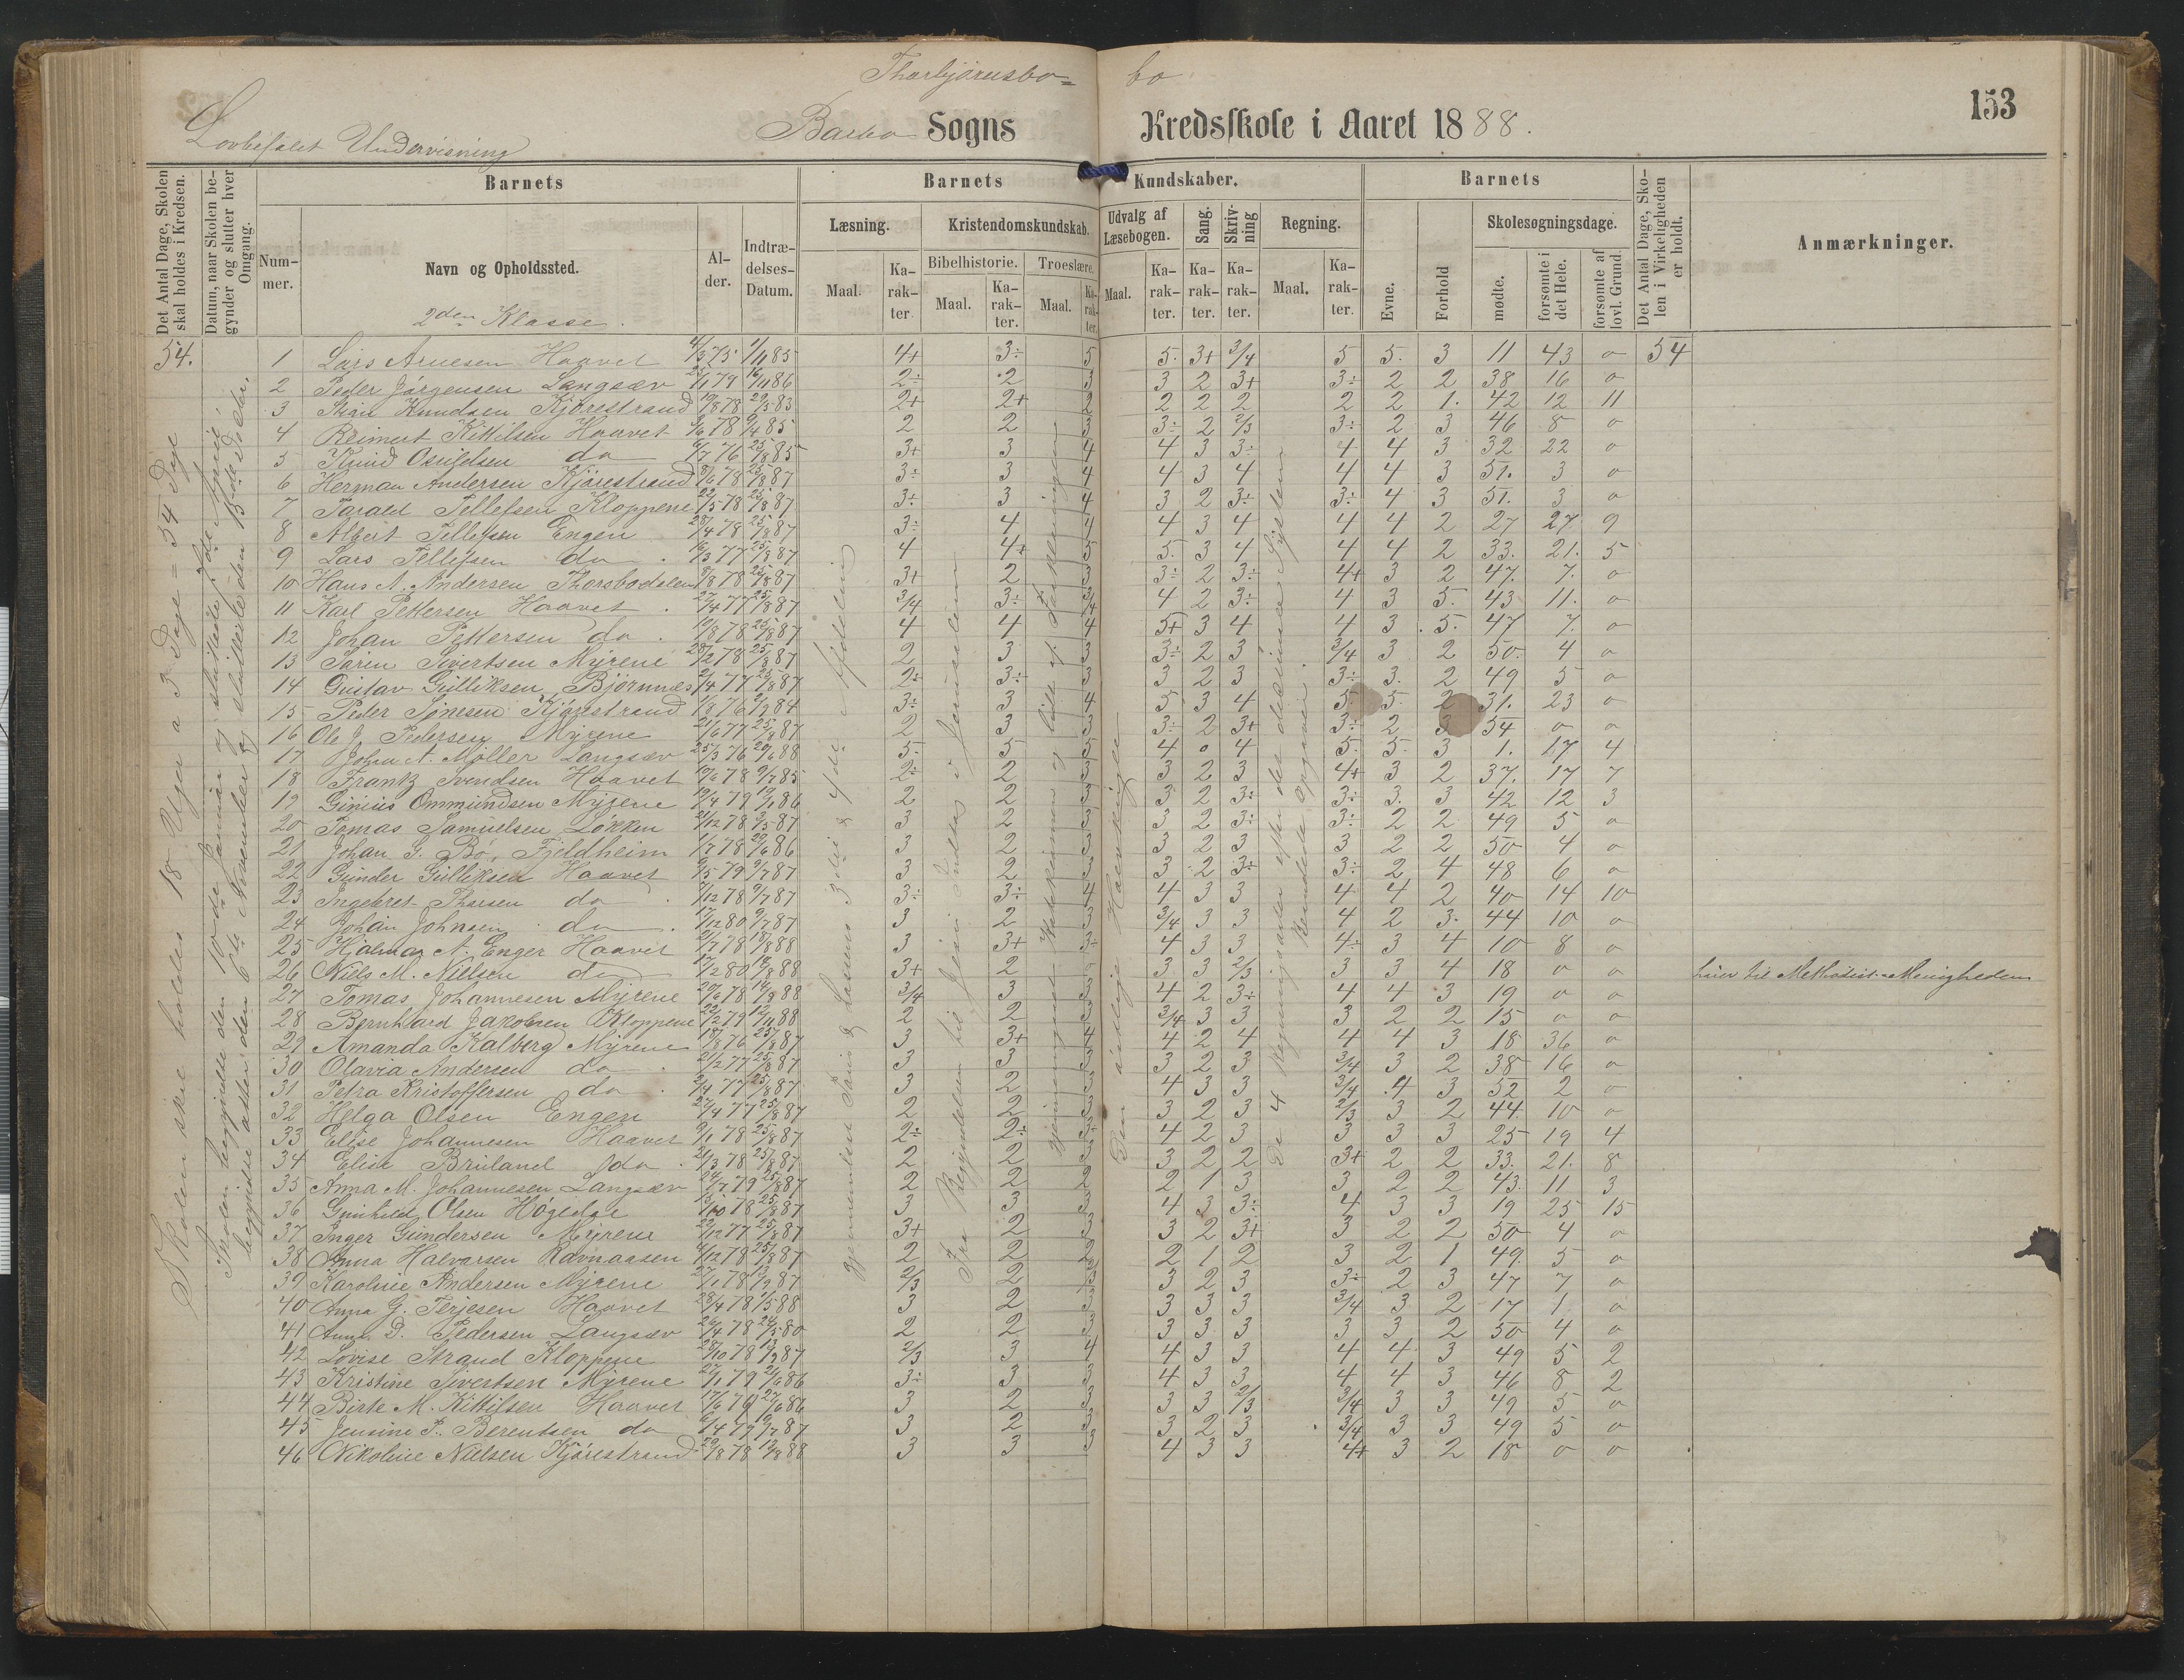 Thorbjørnsbo= bo
153
Lovbefalet Undervisning
Barbo Sogns Kredsskole i Aaret 1888.
Det Antal Dage, Skolen skal holdes i Kredsen.
Datum, naar Skolen begynder og slutter hver Omgang.
Barnets
Barnets Kundskaber.
Barnets
Det Antal Dage, Skolen i Virkeligheden er holdt.
Anmærkninger.
Nummer.
Navn og Opholdssted.
Alder.
Indtrædelses-Datum.
Læsning.
Kristendomskundskab.
Udvalg af Læsebogen.
Sang.
Skrivning
Regning.
Evne.
Forhold
Skolesøgningsdage.
Bibelhistorie.
Troeslære.
Maal.
Karakter.
Maal.
Karakter.
Maal.
Karakter.
Maal.
Karakter.
Karakter.
Karakter.
Maal.
Karakter.
mødte.
forsømte i det Hele.
forsømte af lovl. Grund.
2den Klasse.
Skolen skal holdes 18 Uger a 3 Dage = 54 Dage
54.
1 Lars Arnesen Haavet 4/3 75 1/11 85 4+ 3÷ 5 5. 3+ 3/4 5 5. 3 11 43 o 54
2 Peder Jørgensen Langsæv 25/1 79 16/11 86 2÷ 2 3 3 2 3+ 3÷ 2 2 38 16 o
3 Stian Knudsen Kjørestrand 19/8 78 29/5 83 2+ 2+ 2 2 2 2 2 2 1. 42 12 11
4 Reimert Kittilsen Haavet 2 2 3 3÷ 2 2/3 3÷ 2 3 46 8 o
5 Knud Osuldsen do 6/7 76 25/8 85 3+ 3 4 4 3 3÷ 4 4 3 32 22 o
6 Herman Andersen Kjørestrand 8/6 78 25/8 87 3÷ 3 4 4 3 4 4 4 3 51. 3 o
7 Tarald Tellefsen Kloppene 22/5 78 25/8 87 3÷ 3 4 3 2 3÷ 3÷ 4 3 51. 3 o
8 Albert Tellefsen Engen 28/4 78 25/8 87 3÷ 4 4 4 3 4 4 4 2 27 27. 9
9 Lars Tellefsen do 16/3 77 25/8 87 4 4+ 5 5. 3 4 4 4 2 33. 21. 5
10 Hans A. Andersen Thorsbodalen 8/8 78 25/8 87 3+ 2 3 3÷ 2 3÷ 4+ 3 2 47. 7. o
11 Karl Pettersen Haavet 27/4 77 25/8 87 3/4 3÷ 3/4 4 2 3÷ 4 3 5. 43 11. o
12 Johan Pettersen do 10/8 78 25/8 87 4 4 4 5+ 3 4 4 3 5. 47 7. o
13 Sørin Sivertsen Myrene 28/2 78 25/8 87 2 3 3 3÷ 2 3 3/4 3 2 50. 4 o
14 Gustav Gulliksen, Bjørnnes 2/4 77 25/8 87 2÷ 3÷ 3 3 2 3 3÷ 3. 2 49 5 o
15 Peder Sønesen Kjørestrand 3÷ 3 4 5 3 4 5 5. 2 31. 23 o
16 Ole J. Pedersen Myrene 21/6 77 25/8 87 2 3 3 3÷ 2 3+ 3÷ 2 3 54 o o
17 Johan A. Møller Langsæv 25/3 76 20/6 88 5÷ 5 5 4 o 4 5. 5. 3 1. 17 4
18 Frantz Svendsen Haavet 10/6 78 9/7 85 2÷ 2 3 3 2 3 4+ 3 2 37. 17 7
19 Ginius Ommundsen Myrene 2 2 3 3 2 3÷ 3÷ 3. 3 42 12 3
20 Tomas Samuelsen Løkken 21/12 78 3/5 87 3 2 3 3 2 3÷ 3÷ 2 2 49 5 o
21 Johan G. Bø, Fjeldheim 3 2 3 3 2 3 3 2 2 50 4 o
22 Gunder Gulliksen Haavet 9/5 79 9/7 87 3 2 3 3 2 3÷ 3÷ 2 4 48 6 o
23 Ingebret Thorsen do 3÷ 3÷ 4 4 3 3 4 4 2 40 14 10
24 Johan Johnsen do 17/12 80 9/7 87 3 2 3 3/4 3 3 4 2 3. 44 10 o
25 Hjalmar A. Enger Haavet 3 3+ 3÷ 4 3 3 4÷ 3 4 10 8 o
26 Niels M. Nielsen do 3+ 2 o 3 3 2/3 3 3 4 18 o o hører til Methodist-Menigheden
27 Tomas Johannesen Myrene 20/6 78 14/8 88 3/4 3 3 4 2 3÷ 4 4 3 19 o o
28 Bernhard Jakobsen Kloppene 22/2 79 12/11 88 2 2 3 3/4 3 3 3 2 2 15 o o
29 Amanda Kalberg Myrene 18/8 76 25/8 87 3 3+ 4 4 2 4 4 4 3 18 36 o
30 Olavia Andersen do 21/2 77 25/8 87 3 3 3 3 2 3 3/4 3 2 38 16 o
31 Petra Kristoffersen do 3 2 3 4 3 3 3/4 4 3 52 2 o
32 Helga Olsen Engen 27/4 77 25/8 87 2 2 3 3 2 3 2/3 3 2 44 10 o
33 Elise Johannesen Haavet 9/1 78 25/8 87 2÷ 2÷ 3÷ 4 2 3 3 3 3 25 19 4
34 Elise Bruland do 21/3 78 25/8 87 2 2 3 3 2 2 3+ 2 2 33. 21. 8
35 Anna M. Johannesen Langsæv 24/7 79 25/8 87 2 2 2 2 1 3 3 2 2 43. 11 3
36 Gunhild Olsen Høgedal 3 3 3 4 3 3÷ 4 3 3 19 25 15
37 Inger Gundersen Myrene 22/12 77 25/8 87 3+ 2 3 3 2 3+ 3 2 2 50 4 o
38 Anna Halvorsen Ravnaasen 4/12 78 25/8 87 2 2 2 2 1 2 3 2 1 49. 5 o
39 Karoline Andersen Myrene 2/3 2 3 2 3 3÷ 2 3 47 7 o
40 Anna G. Terjesen Haavet 28/4 78 1/5 88 3 2 3 3 3 3 3/4 3 2 17 1 o
41 Anna P. Pedersen Langsæv 2 2 3 3 3 3 3 3 2 50 4 o
42 Lovise Strand Kloppene 2/3 3 4 4 3 3 4 4 3 49 5 2
43 Kristine Sivertsen Myrene 27/1 79 21/6 86 3÷ 3 3 4 3 3 4 4 3 46 8 2
44 Birte M. Kittilsen Haavet 17/6 79 27/6 86 3 2 3 3 3 2/3 3/4 3 3 49 5 o
45 Jensine P. Berentsen do 3 2 3 3 2 3 3/4 3 3 49 5 o
46 Nikoline Nielsen Kjørestrand 3 3 3 4 3 3 4+ 3 2 18 o o
Skolen begyndte den 10de Januar og sluttede
begyndte atter den 6te November og sluttede den 15de
Gjennemlæst 3die & 4de Afdeling
Fra Begyndelsen til Jesu Indtog i Jerusalem
Gjennemgaaet Katekismen og lidt af Forklaringen
Den Hæskrigen
De 4 Regningsarter efter det decimale System
Benævnte Opgaver.